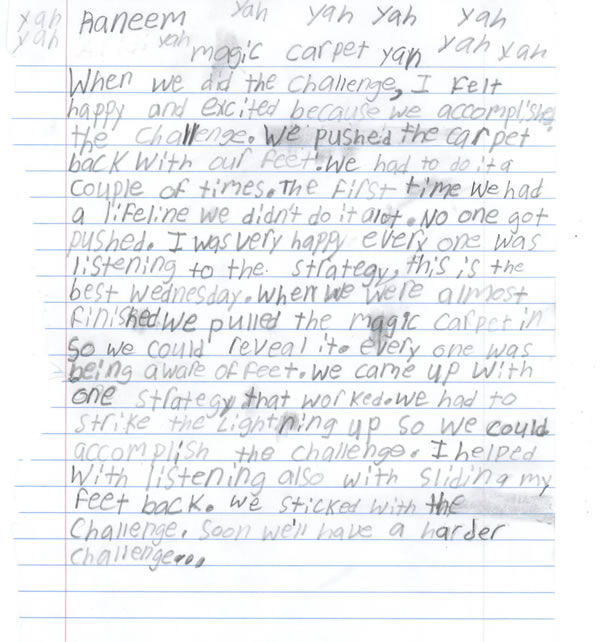 yah Raneem yah yah yah yah
yah yah magic carpet yah yah yah
When we did the challenge, I felt
happy and excited because we accomplished
the challenge. We pushed the carpet
back with our feet. we had to do it a
couple of times. The first time we had
a lifeline we didn't do it alot. No one got
pushed. I was very happy every one was
listening to the strategy, this is the
best Wednesday. when we were almost
finished we pulled the magic carpet in
So we could reveal it. every one was
being aware of feet. we came up with
one strategy that worked. we had to
strike the Lightning up so we could
accomplish the challenge. I helped
with listening also with sliding my
feet back. we sticked with the
Challenge. Soon we'll have a harder
challenge...